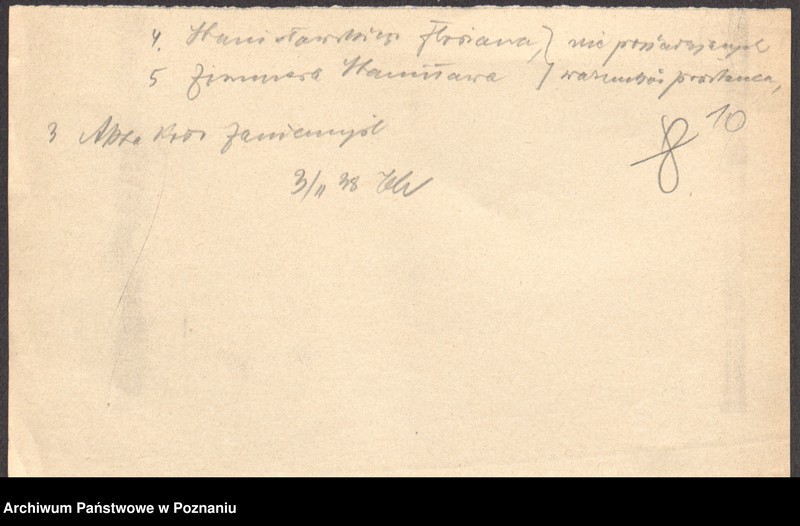 4. Stanisławskiego Floriana, } nie posiadających
5 Zimmera Stanisława } warunków powstańca,
10
3 Akta Koło Zaniemyśl
3/II 38
Archiwum Państwowe w Poznaniu